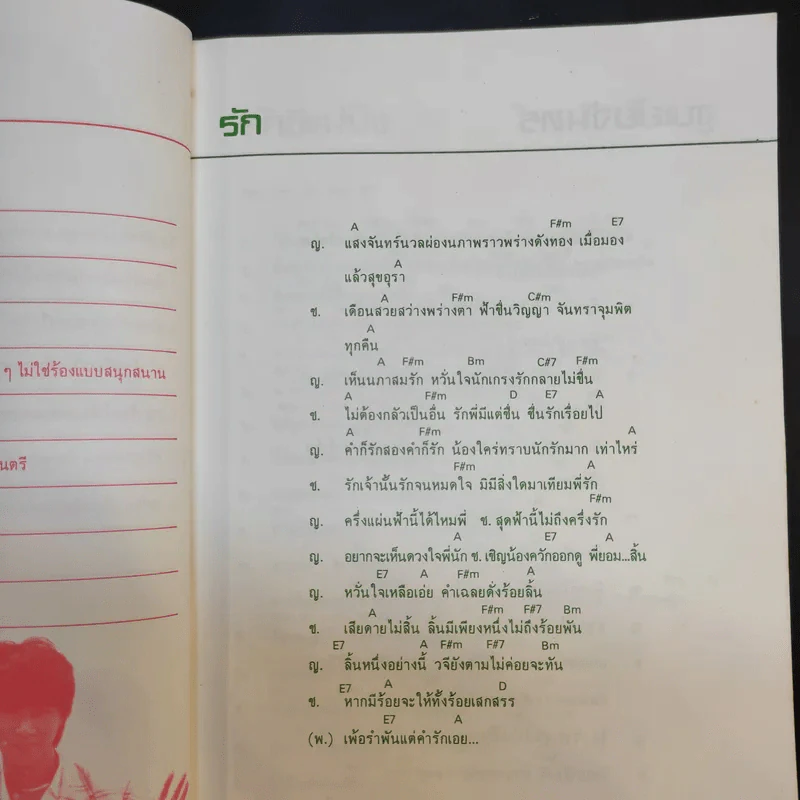 ๆ ไม่ใช่ร้องแบบสนุกสนาน
นตรี
รัก
A F#m E7
ญ. แสงจันทร์นวลผ่องนภาพราวพร่างดังทอง เมื่อมอง
A
แล้วสุขอุรา
A F#m C#m
ช. เดือนสวยสว่างพร่างตา ฟ้าชื่นวิญญา จันทราจุมพิต
A
ทุกคืน
A F#m Bm C#7 F#m
ญ. เห็นนภาสมรัก หวั่นใจนักเกรงรักกลายไม่ชื่น
A F#m D E7 A
ช. ไม่ต้องกลัวเป็นอื่น รักพี่มีแต่ชื่น ชื่นรักเรื่อยไป
A F#m A
ญ. คำก็รักสองคำก็รัก น้องใคร่ทราบนักรักมาก เท่าไหร่
F#m A
ช. รักเจ้านั้นรักจนหมดใจ มิมีสิ่งใดมาเทียมพี่รัก
F#m
ญ. ครึ่งแผ่นฟ้านี้ได้ไหมพี่ ช. สุดฟ้านี้ไม่ถึงครึ่งรัก
A E7 A
ญ. อยากจะเห็นดวงใจพี่นัก ช. เชิญน้องควักออกดู พี่ยอม...สิ้น
E7 A F#m A
ญ. หวั่นใจเหลือเอ่ย คำเฉลยดั่งร้อยลิ้น
A F#m F#7 Bm
ช. เสียดายไม่สิ้น ลิ้นมีเพียงหนึ่งไม่ถึงร้อยพัน
E7 A F#m F#7 Bm
ญ. ลิ้นหนึ่งอย่างนี้ วจียังตามไม่ค่อยจะทัน
E7 A D
ช. หากมีร้อยจะให้ทั้งร้อยเสกสรร
E7 A
(พ.) เพ้อรำพันแต่คำรักเอย...